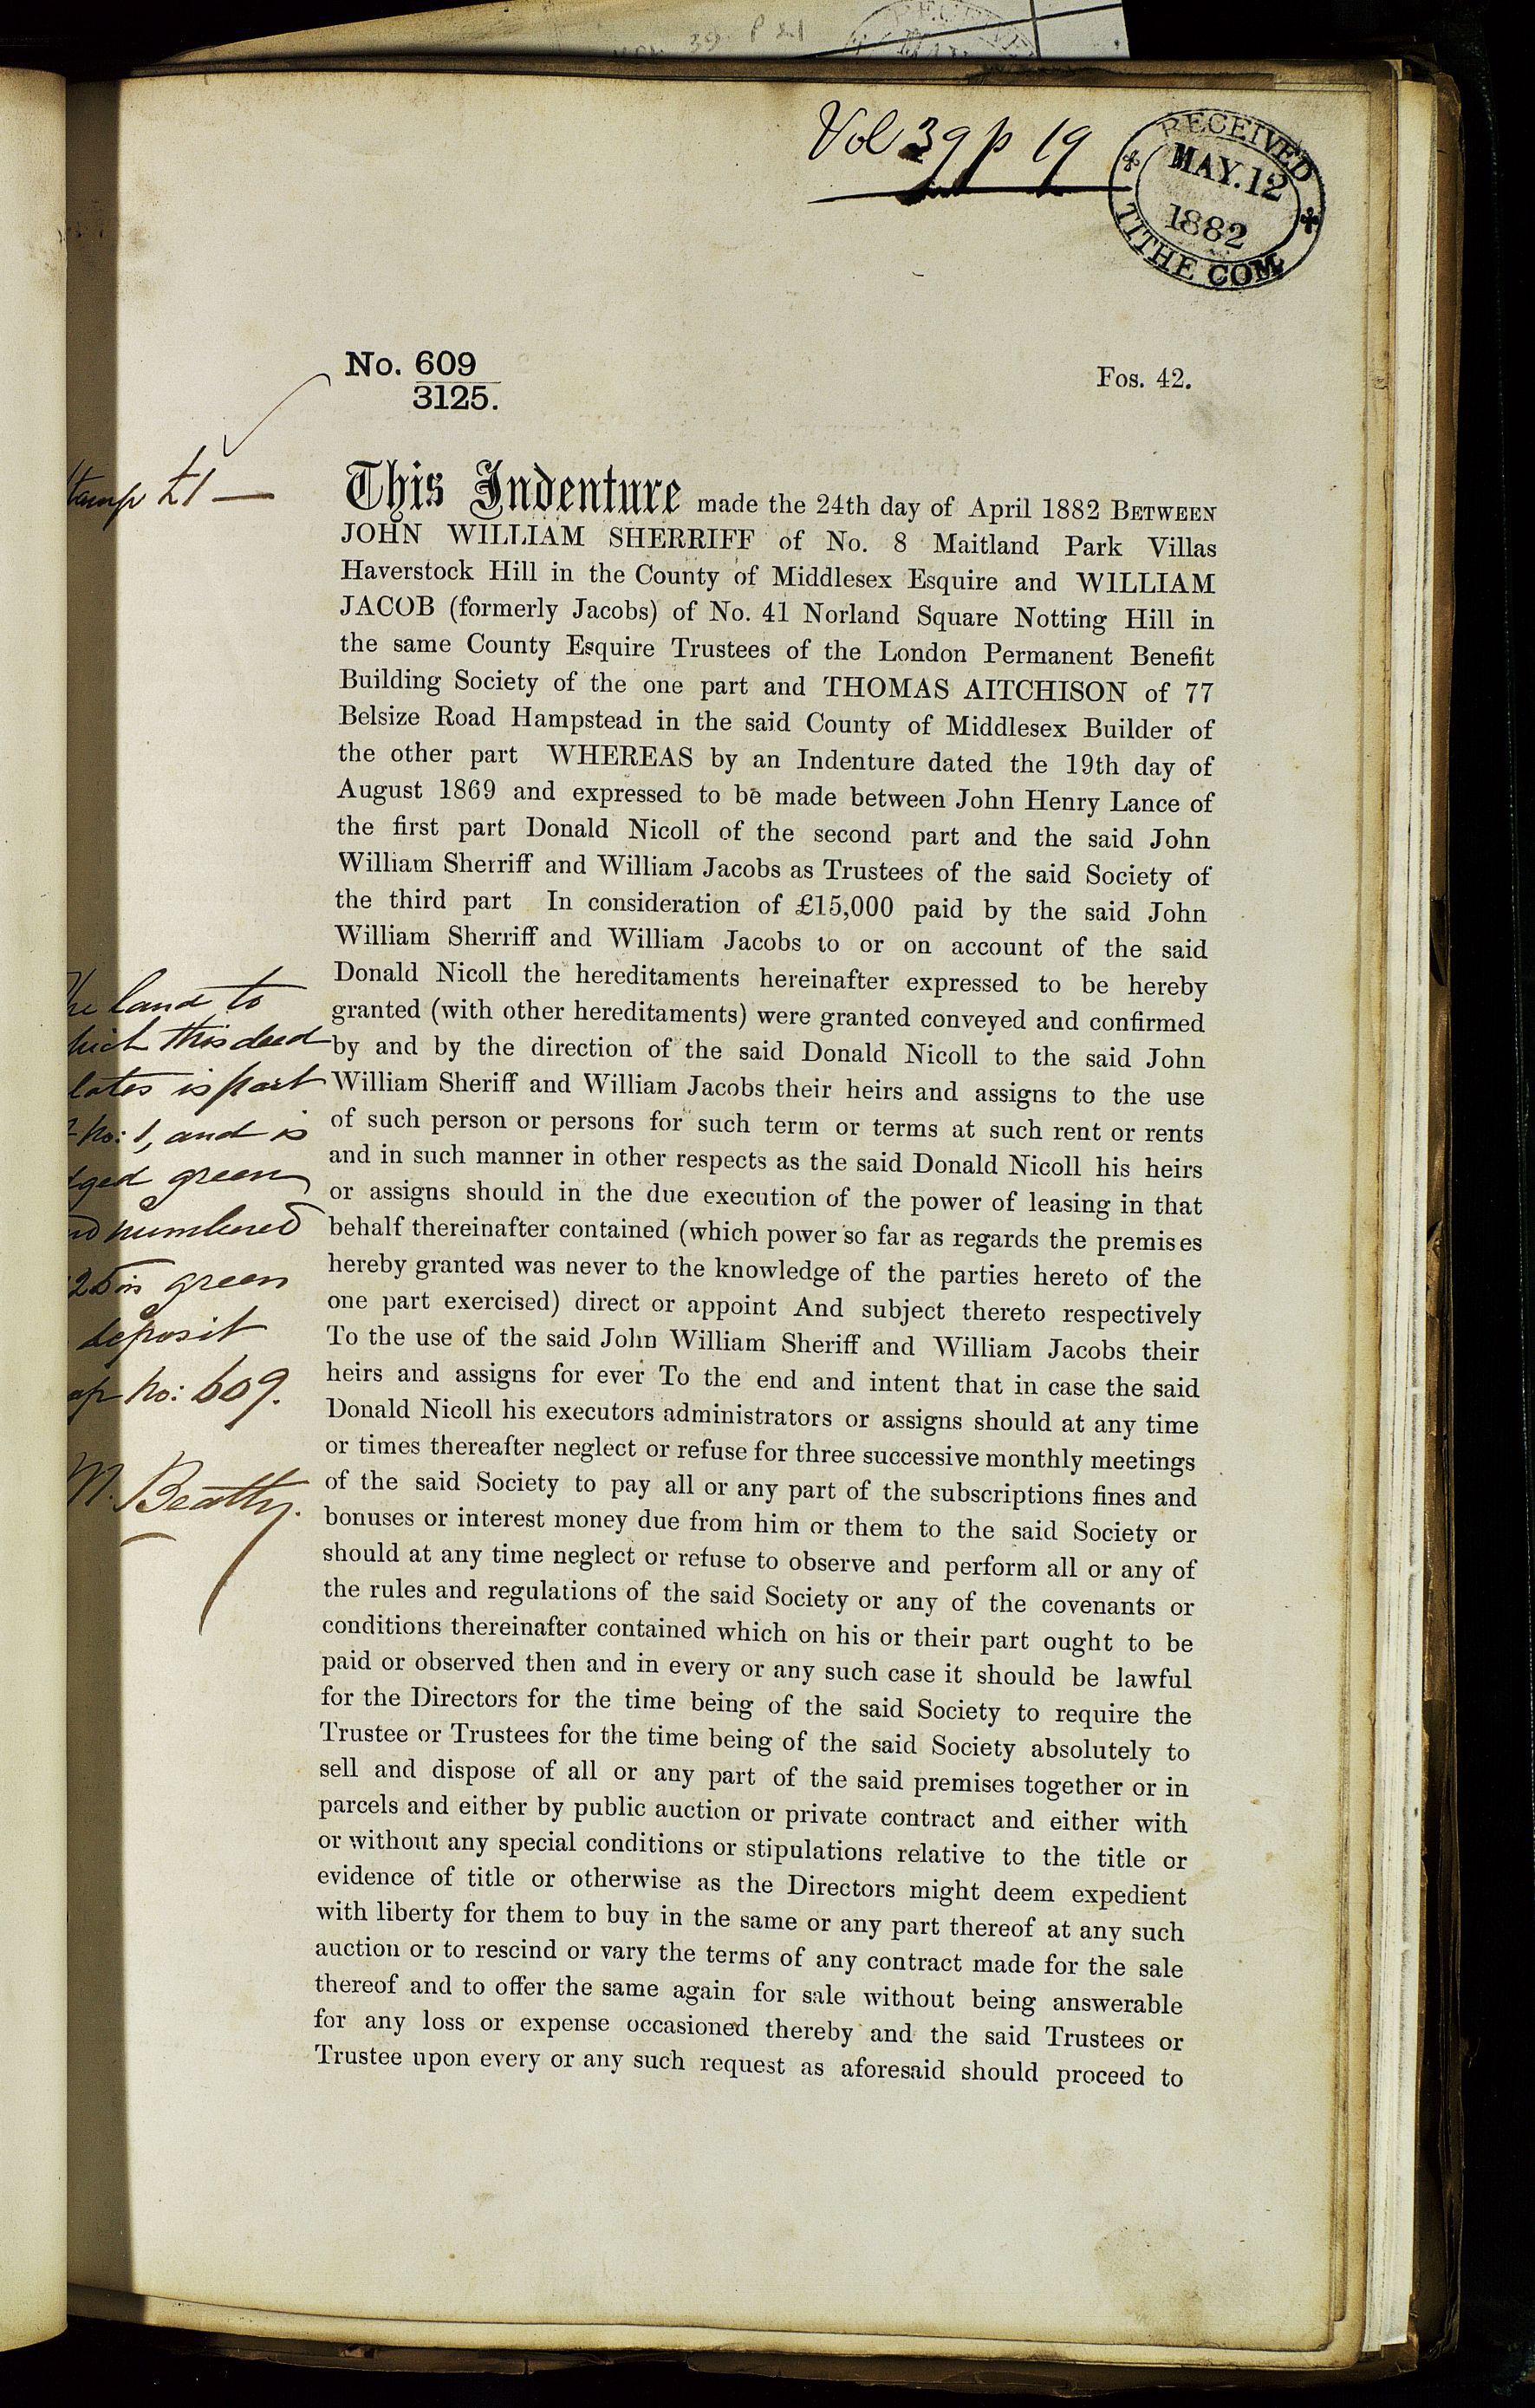 Vol 39 p 19
RECEIVED
MAY.12
1882
TITHE COM
No. 609
3125.
Fos. 42.
tamp £1 —
This Indenture made the 24th day of April 1882 BETWEEN
JOHN WILLIAM SHERRIFF of No. 8 Maitland Park Villas
Haverstock Hill in the County of Middlesex Esquire and WILLIAM
JACOB (formerly Jacobs) of No. 41 Norland Square Notting Hill in
the same County Esquire Trustees of the London Permanent Benefit
Building Society of the one part and THOMAS AITCHISON of 77
Belsize Road Hampstead in the said County of Middlesex Builder of
the other part WHEREAS by an Indenture dated the 19th day of
August 1869 and expressed to be made between John Henry Lance of
the first part Donald Nicoll of the second part and the said John
William Sherriff and William Jacobs as Trustees of the said Society of
the third part In consideration of £15,000 paid by the said John
William Sherriff and William Jacobs to or on account of the said
Donald Nicoll the hereditaments hereinafter expressed to be hereby
granted (with other hereditaments) were granted conveyed and confirmed
by and by the direction of the said Donald Nicoll to the said John
William Sheriff and William Jacobs their heirs and assigns to the use
of such person or persons for such term or terms at such rent or rents
and in such manner in other respects as the said Donald Nicoll his heirs
or assigns should in the due execution of the power of leasing in that
behalf thereinafter contained (which power so far as regards the premises
hereby granted was never to the knowledge of the parties hereto of the
one part exercised) direct or appoint And subject thereto respectively
To the use of the said John William Sheriff and William Jacobs their
heirs and assigns for ever To the end and intent that in case the said
Donald Nicoll his executors administrators or assigns should at any time
or times thereafter neglect or refuse for three successive monthly meetings
of the said Society to pay all or any part of the subscriptions fines and
bonuses or interest money due from him or them to the said Society or
should at any time neglect or refuse to observe and perform all or any of
the rules and regulations of the said Society or any of the covenants or
conditions thereinafter contained which on his or their part ought to be
paid or observed then and in every or any such case it should be lawful
for the Directors for the time being of the said Society to require the
Trustee or Trustees for the time being of the said Society absolutely to
sell and dispose of all or any part of the said premises together or in
parcels and either by public auction or private contract and either with
or without any special conditions or stipulations relative to the title or
evidence of title or otherwise as the Directors might deem expedient
with liberty for them to buy in the same or any part thereof at any such
auction or to rescind or vary the terms of any contract made for the sale
thereof and to offer the same again for sale without being answerable
for any loss or expense occasioned thereby and the said Trustees or
Trustee upon every or any such request as aforesaid should proceed to
he land to
hich this deed
lates is part
no: 1, and is
dged green
nd numbered
25 in green
deposit
ap no: 609.
M. Beatty.